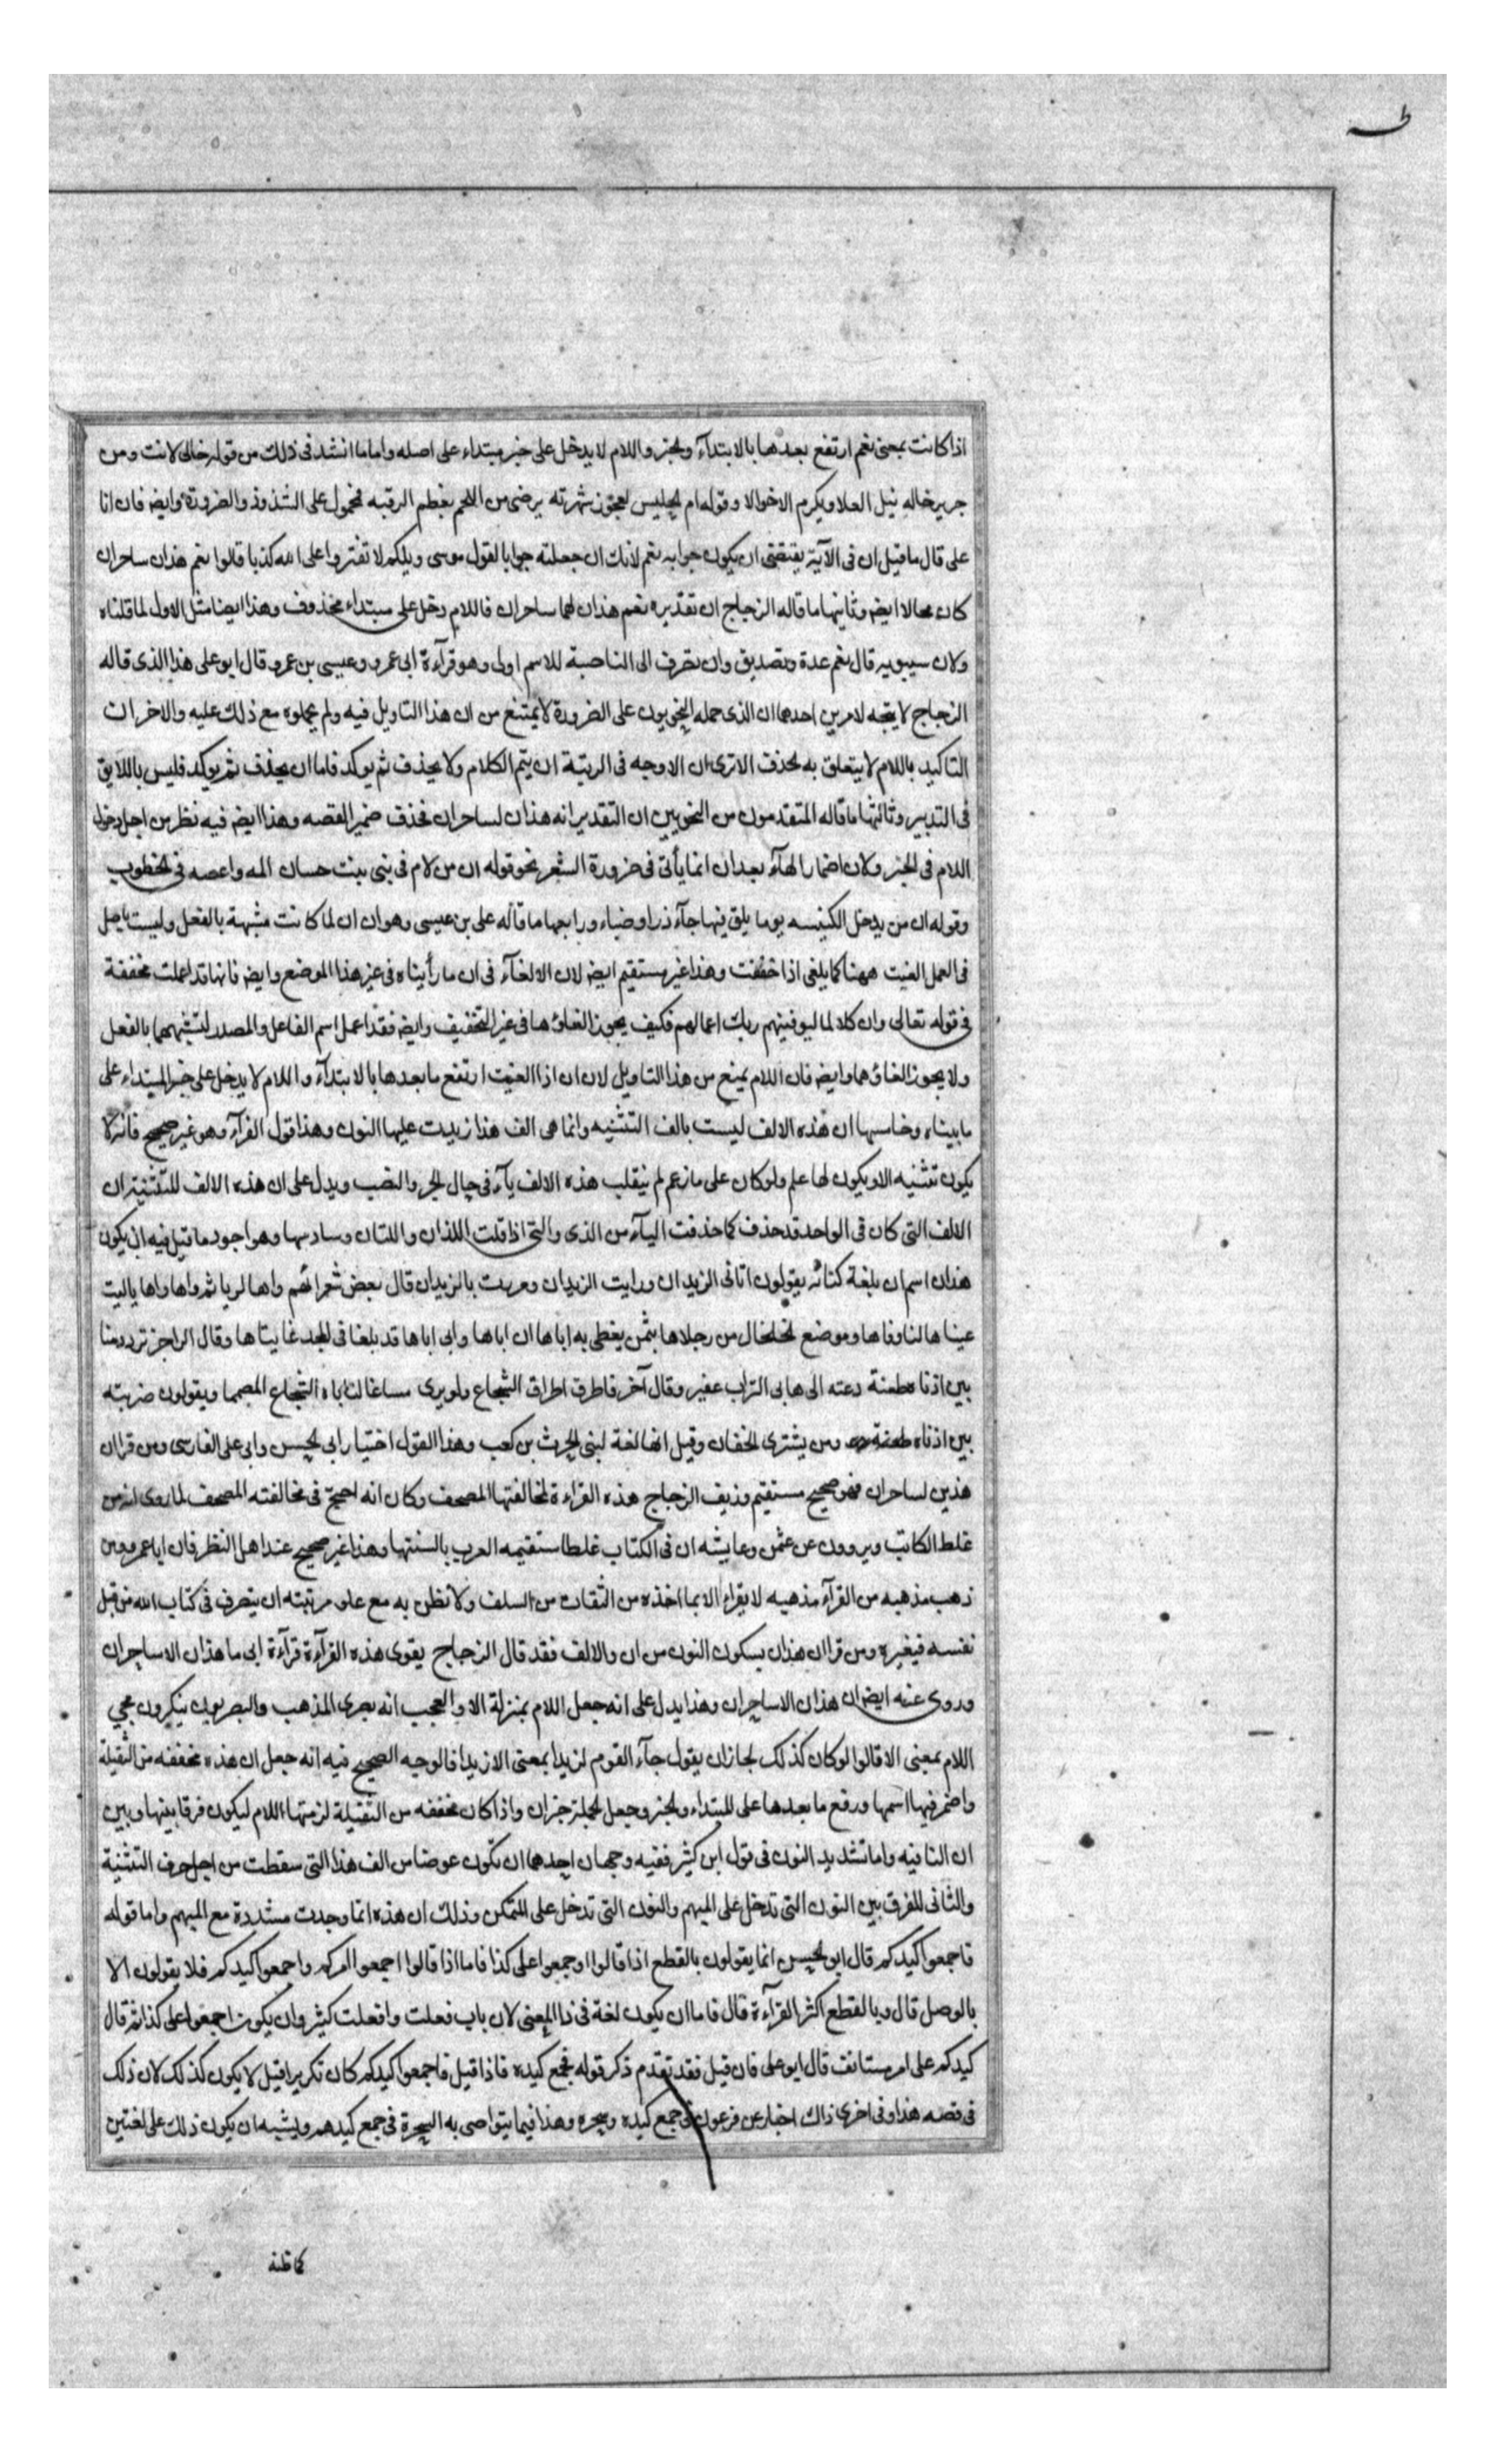 طه
اذا كانت بمعنى نعم ارتفع بعدها بالابتدآء والخبر واللام لا يدخل على خبر مبتداء على اصله واما ما انشد فى ذلك من قوله خالى لانت ومن
جرير خاله نيل العلا ويكرم الاخوالا وقوله ام الحليس لعجوز شهربه يرضى من اللحم بعظم الرقبه فمحمول على الشذوذ والضرورة وايضا فان ابا
على قال ما قيل ان فى الآية يقتضى ان يكون جوابه نعم لانك ان جعلته جوابا لقول موسى ويلكم لا تفتروا على الله كذبا قالوا نعم هذان ساحران
كان محالا ايضا وثانيها ما قاله الزجاج ان تقديره نعم هذان لهما ساحران فاللام دخل على مبتداء محذوف وهذا ايضا مثل الاول لما قلناه
ولان سيبويه قال نعم عدة وتصديق وان تصرف الى الناصبة للاسم اولى وهو قرآءة ابى عمرو وعيسى بن عمرو قال ابو على هذا الذى قاله
الزجاج لا يتجه لامرين احدهما ان الذى حمله النحويون على الضرورة لا يمتنع من ان هذا التاويل فيه ولم يحملوه مع ذلك عليه والاخر ان
التاكيد باللام لا يتعلق به لحذف الا ترى ان الاوجه فى الرتبة ان يتم الكلام ولا يحذف ثم يوكد فاما ان يحذف ثم يوكد فليس باللايق
فى التدبير وثالثها ما قاله المتقدمون من النحويين ان التقدير انه هذان لساحران فحذف ضمير القصه وهذا ايضا فيه نظر من اجل دخول
اللام فى الخبر ولان اضمار الهآء بعد ان انما يأتى فى ضرورة الشعر نحو قوله ان من لام فى بنى بنت حسان المه واعصه فى الخطوب
وقوله ان من يدخل الكنيسه يوما يلق فيها جآءذرا وضباء ورابعها ما قاله على بن عيسى وهو ان ان لما كانت مشبهة بالفعل وليست باصل
فى العمل الغيت ههنا كما يلغى اذا خففت وهذا غير مستقيم ايضا لان الالغآء فى ان ما رأيناه فى غير هذا الموضع وايضا فانها قد اعملت مخففة
فى قوله تعالى وان كلا لما ليوفينهم ربك اعمالهم فكيف يجوز الغاؤها فى غير التخفيف وايضا فقد اعمل اسم الفاعل والمصدر لشبههما بالفعل
ولا يجوز الغاؤهما وايضا فان اللام يمنع من هذا التاويل لان ان اذا الغيت ارتفع ما بعدها بالابتدآء واللام لا يدخل على خبر المبتداء على
ما بيناه وخامسها ان هذه الالف ليست بالف التثنيه وانما هى الف هذا زيدت عليها النون وهذا قول الفرآء وهو غير صحيح فانه لا
يكون تثنيه الا ويكون لها علم ولو كان على ما زعم لم ينقلب هذه الالف يآء فى حال الجر والنصب ويدل على ان هذه الالف للتثنية ان
الالف التى كان فى الواحد قد حذف كما حذفت اليآء من الذى والتى اذا قلت اللذان واللتان وسادسها وهو اجود ما قيل فيه ان يكون
هذان اسم ان بلغة كنانه يقولون اتانى الزيدان ورايت الزيدان ومررت بالزيدان قال بعض شعرائهم واها لريا ثم واها واها يا ليت
عيناها لنا وفاها وموضع الخلخال من رجلاها بثمن يعطى به اباها ان اباها وابى اباها قد بلغا فى المجد غايتاها وقال الراجز تزود منا
بين اذناه طعنة دعته الى هابى التراب عقير وقال آخر فاطرق اطراق الشجاع ولو يرى مساغا لناباه الشجاع لصمما ويقولون ضربته
بين اذناه ومن يشترى الخفان وقيل انها لغة لبنى الحرث بن كعب وهذا القول اختيار ابى الحسن وابى على الفارسى ومن قرا ان
هذين لساحران فهو صحيح مستقيم وزيف الزجاج هذه القراءة لمخالفتها المصحف وكان انه احتج فى مخالفته المصحف لما روى انه من
غلط الكاتب ويروون عن عثمن وعايشه ان فى الكتاب غلطا ستقيمه العرب بالسنتها وهذا غير صحيح عند اهل النظر فان ابا عمرو ومن
ذهب مذهبه من القرآء مذهبه لا يقراء الا بما اخذه من الثقات من السلف ولا نظن به مع علو مرتبته ان يتصرف فى كتاب الله من قبل
نفسه فيغيره ومن قرا ان هذان بسكون النون من ان والالف فقد قال الزجاج يقوى هذه القرآءة قرآءة ابى ما هذان الا ساحران
وروى عنه ايضا ان هذان الا ساحران وهذا يدل على انه جعل اللام بمنزلة الا والعجب انه بصرى المذهب والبصريون ينكرون مجى
اللام بمعنى الا قالوا لو كان كذلك لجاز ان يقول جآء القوم لزيدا بمعنى الا زيدا فالوجه الصحيح فيه انه جعل ان هذه مخففه من الثقيلة
واضمر فيها اسمها ورفع ما بعدها على المبتداء والخبر وجعل الجملة خبر ان واذا كان مخففه من الثقيلة لزمتها اللام ليكون فرقا بينها وبين
ان النافيه واما تشديد النون فى قول ابن كثير ففيه وجهان احدهما ان تكون عوضا من الف هذا التى سقطت من اجل حرف التثنية
والثانى للفرق بين النون التى تدخل على المبهم والنون التى تدخل على المتمكن وذلك ان هذه انما وجدت مشددة مع المبهم واما قوله
فاجمعوا كيدكم قال ابو الحسن انما يقولون بالقطع اذا قالوا اجمعوا على كذا فاما اذا قالوا اجمعوا امركم واجمعوا كيدكم فلا يقولون الا
بالوصل قال وبالقطع اكثر القرآءة قال فاما ان يكون لغة فى ذا المعنى لان باب فعلت وافعلت كثير وان يكون اجمعوا على كذا ثم قال
كيدكم على امر مستانف قال ابو على فان قيل فقد تقدم ذكر قوله فجمع كيده فاذا قيل فاجمعوا كيدكم كان تكريرا قيل لا يكون كذلك لان ذلك
فى قصه هذا وفى اخرى ذاك اخبار عن فرعون فى جمع كيده وسحره وهذا فيما يتواصى به السحرة فى جمع كيدهم ويشبه ان يكون ذلك على لغتين
كما ظنه